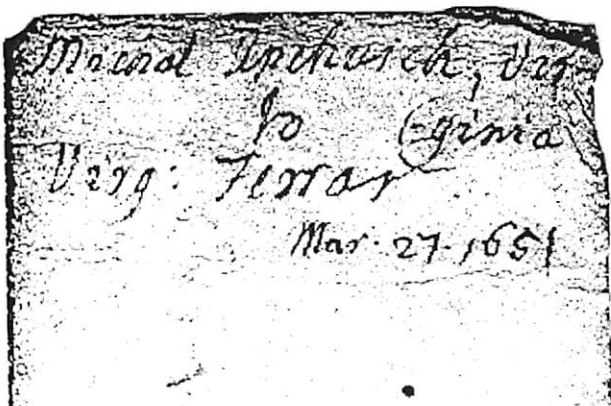 Michael Upchurch, Vir-
to (ginia
Virg: Ferrar
Mar. 27. 1651